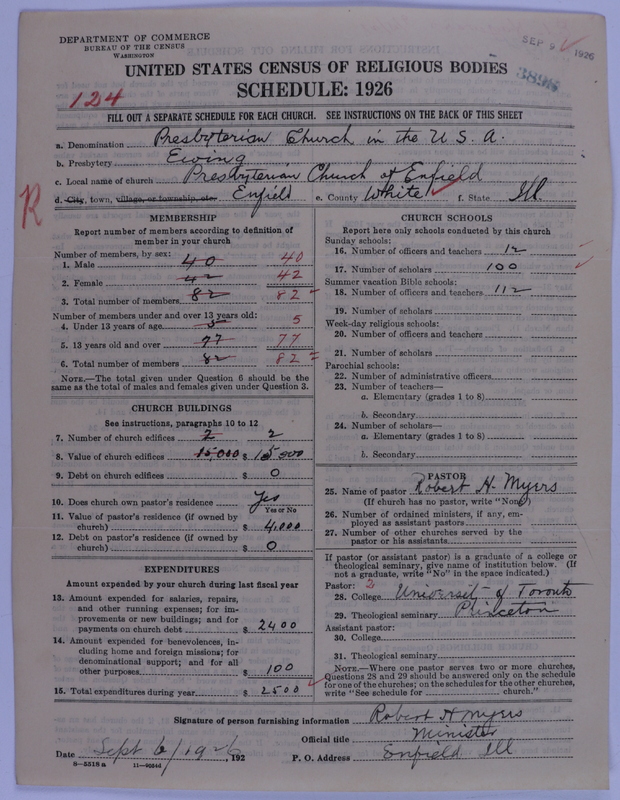 DEPARTMENT OF COMMERCE
BUREAU OF THE CENSUS
WASHINGTON
SEP 9 1926
3898
UNITED STATES CENSUS OF RELIGIOUS BODIES
124
SCHEDULE: 1926
FILL OUT A SEPARATE SCHEDULE FOR EACH CHURCH. SEE INSTRUCTIONS ON THE BACK OF THIS SHEET
a. Denomination Presbyterian Church in the U. S. A.
b. Presbytery Ewing
c. Local name of church Presbyterian Church of Enfield
R
d. City, town, village, or township, etc. Enfield e. County White f. State Ill.
MEMBERSHIP
Report number of members according to definition of
member in your church
Number of members, by sex:
1. Male 40 40
2. Female 42 42
3. Total number of members 82 82
Number of members under and over 13 years old:
4. Under 13 years of age 5 5
5. 13 years old and over 77 77
6. Total number of members 82 82
NOTE.—The total given under Question 6 should be the
same as the total of males and females given under Question 3.
CHURCH BUILDINGS
See instructions, paragraphs 10 to 12
7. Number of church edifices 2 2
8. Value of church edifices 15,000 $ 15000
9. Debt on church edifices $ 0
10. Does church own pastor's residence Yes
Yes or No
11. Value of pastor's residence (if owned by
church) $ 4,000
12. Debt on pastor's residence (if owned by
church) $ 0
EXPENDITURES
Amount expended by your church during last fiscal year
13. Amount expended for salaries, repairs,
and other running expenses; for im-
provements or new buildings; and for
payments on church debt $ 2400
14. Amount expended for benevolences, in-
cluding home and foreign missions; for
denominational support; and for all
other purposes $ 100
15. Total expenditures during year $ 2500
CHURCH SCHOOLS
Report here only schools conducted by this church
Sunday schools:
16. Number of officers and teachers 12
17. Number of scholars 100
Summer vacation Bible schools:
18. Number of officers and teachers 112
19. Number of scholars
Week-day religious schools:
20. Number of officers and teachers
21. Number of scholars
Parochial schools:
22. Number of administrative officers
23. Number of teachers—
a. Elementary (grades 1 to 8)
b. Secondary
24. Number of scholars—
a. Elementary (grades 1 to 8)
b. Secondary
PASTOR
25. Name of pastor Robert H. Myers
(If church has no pastor, write "None")
26. Number of ordained ministers, if any, em-
ployed as assistant pastors
27. Number of other churches served by the
pastor or his assistants
If pastor (or assistant pastor) is a graduate of a college or
theological seminary, give name of institution below. (If
not a graduate, write "No" in the space indicated.)
Pastor: 2
28. College University of Toronto
29. Theological seminary Princeton
Assistant pastor:
30. College
31. Theological seminary
NOTE.—Where one pastor serves two or more churches,
Questions 28 and 29 should be answered only on the schedule
for one of the churches; on the schedules for the other churches,
write "See schedule for church."
Signature of person furnishing information Robert H Myers
Official title Minister
Date Sept 6/1926, 192 P. O. Address Enfield Ill
8-5518a 11-9034d